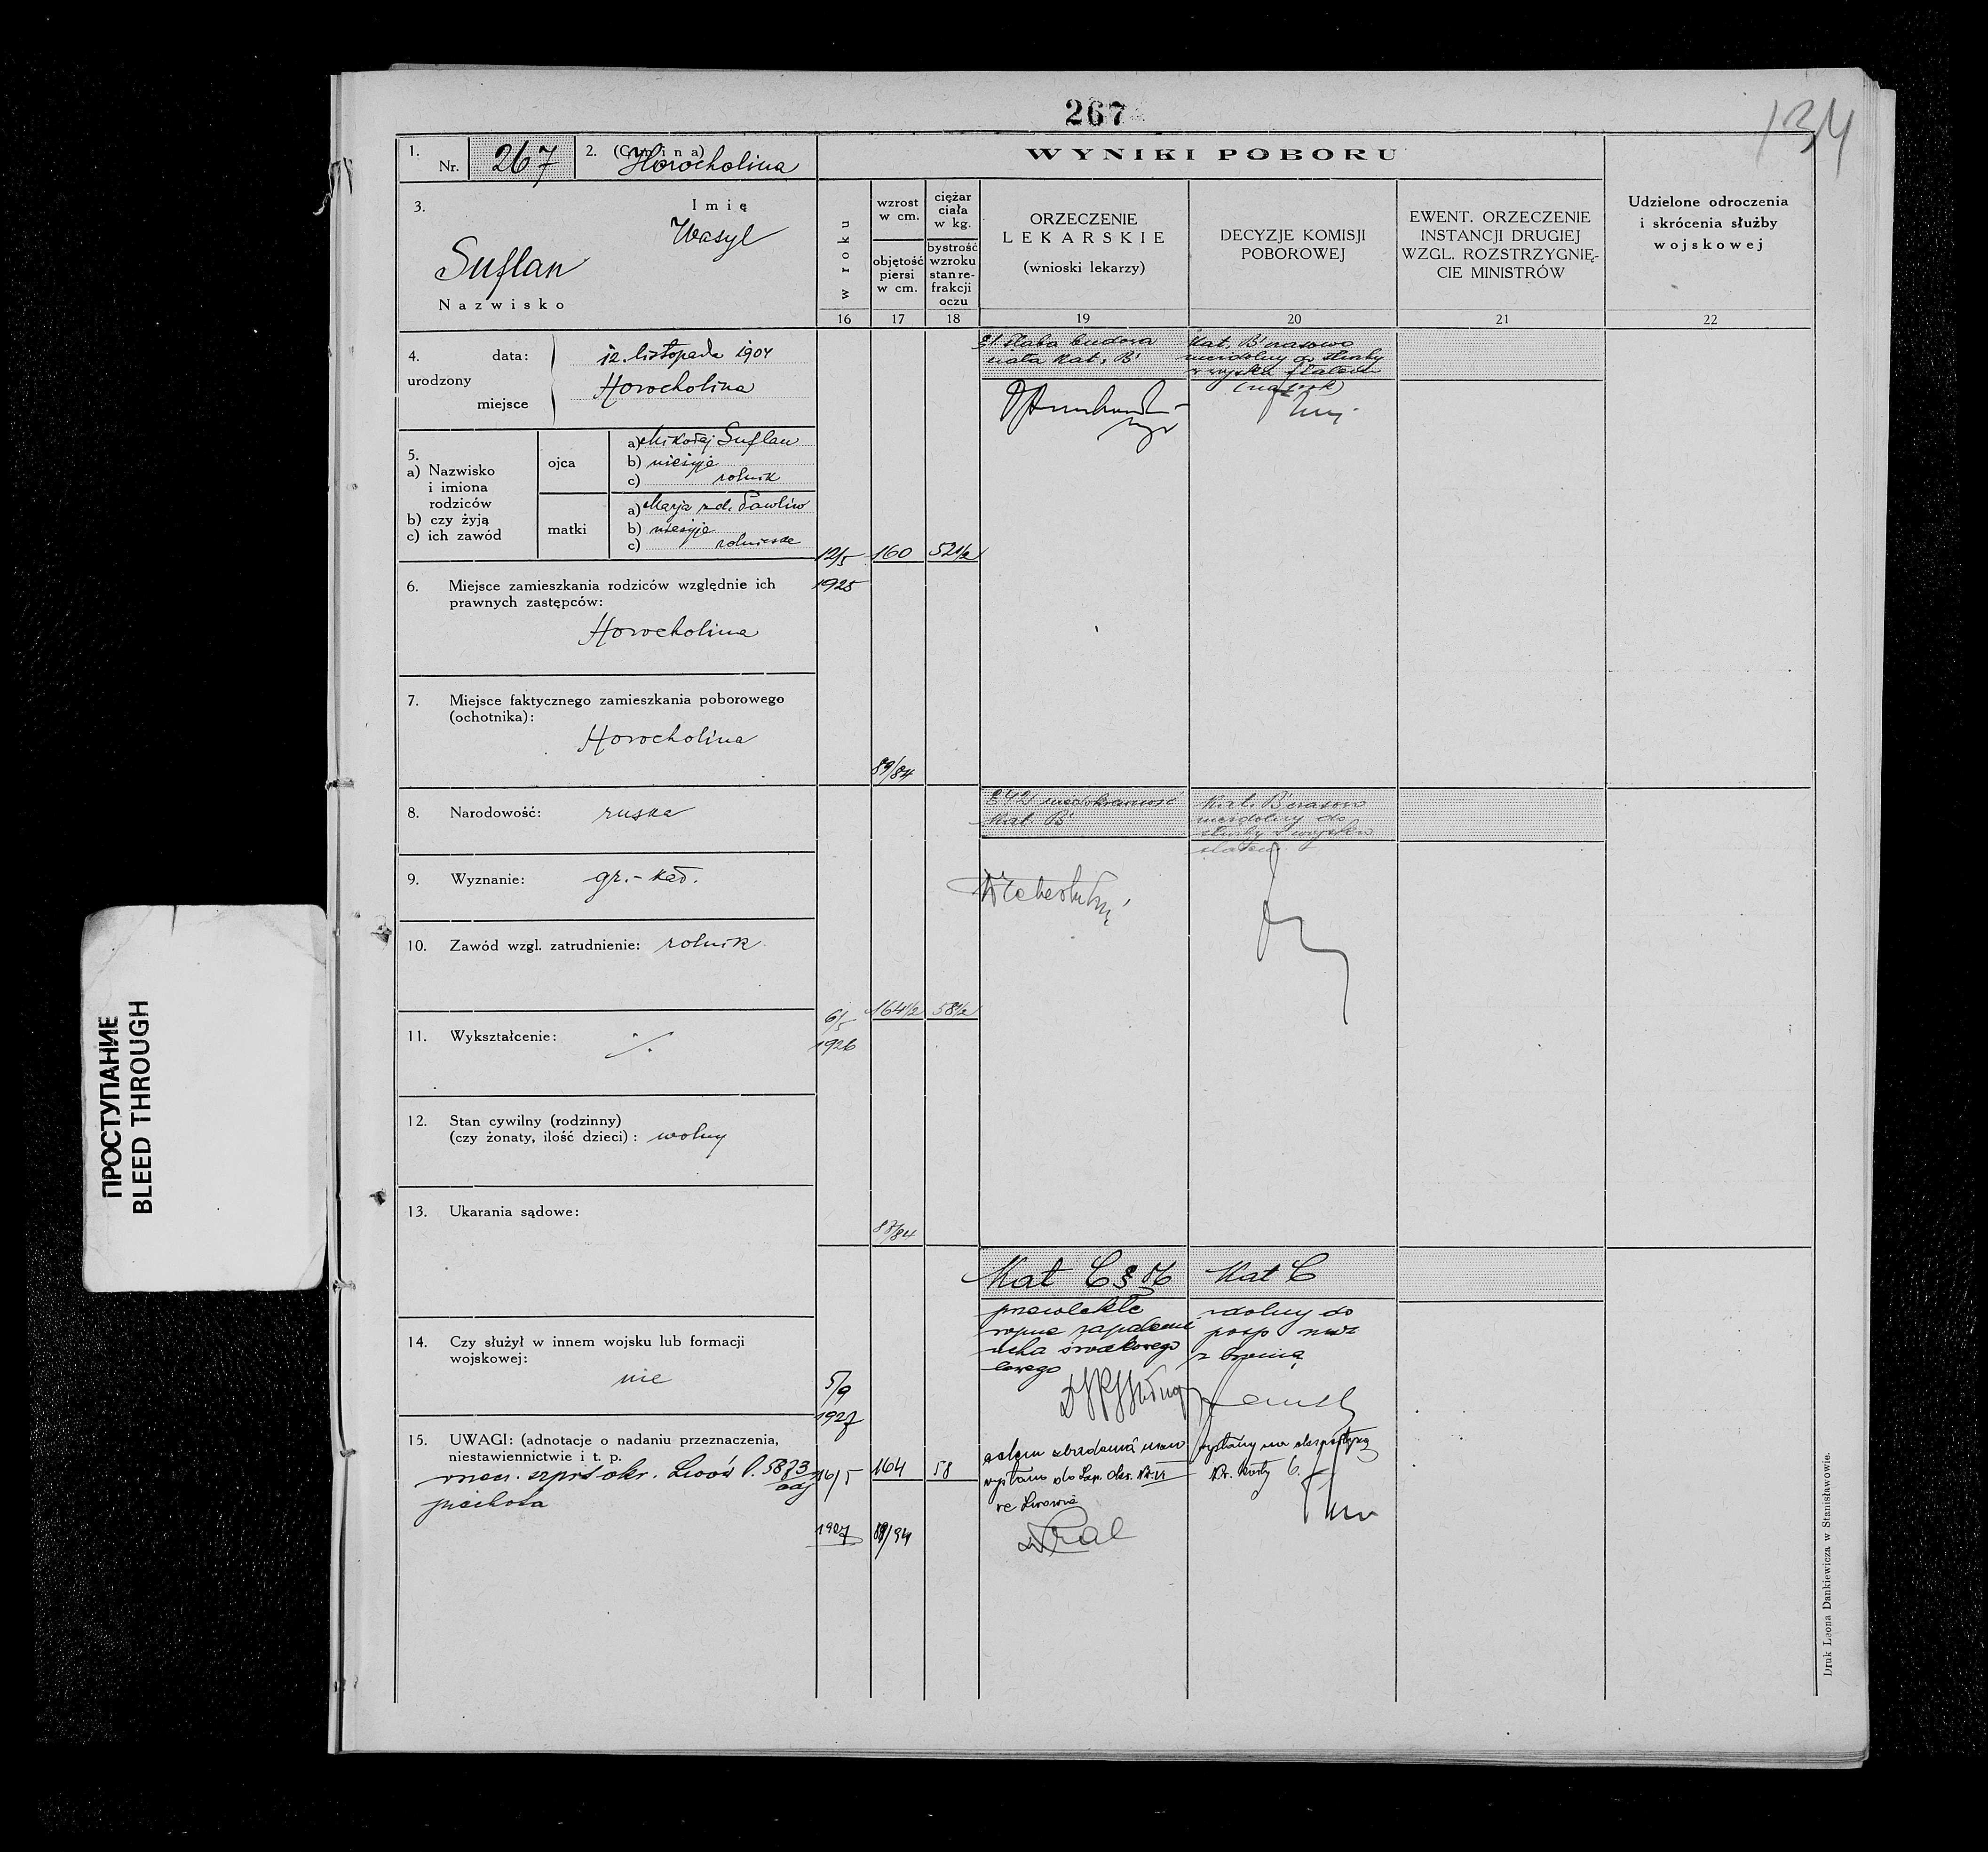 267
134
1. Nr. 267
2. (Gmina) Horocholina
3. Imię
Wasyl
Suflan
Nazwisko
4. data: 12. listopada 1904
urodzony
Horocholina
miejsce
5.
a) Nazwisko
i imiona
rodziców
b) czy żyją
c) ich zawód
ojca
a) Mikołaj Suflan
b) nieżyje
c) rolnik
matki
a) Marja zd. Pawliw
b) nieżyje
c) rolniczka
6. Miejsce zamieszkania rodziców względnie ich
prawnych zastępców:
Horocholina
7. Miejsce faktycznego zamieszkania poborowego
(ochotnika):
Horocholina
8. Narodowość: ruska
9. Wyznanie: gr.-kat.
10. Zawód wzgl. zatrudnienie: rolnik
11. Wykształcenie: ./.
12. Stan cywilny (rodzinny)
(czy żonaty, ilość dzieci): wolny
13. Ukarania sądowe:
14. Czy służył w innem wojsku lub formacji
wojskowej:
nie
15. UWAGI: (adnotacje o nadaniu przeznaczenia,
niestawiennictwie i t. p.
okr. Lwów l. 5873
piechota
WYNIKI POBORU
w roku
16
wzrost
w cm.
objętość
piersi
w cm.
17
ciężar
ciała
w kg.
bystrość
wzroku
stan re-
frakcji
oczu
18
ORZECZENIE
LEKARSKIE
(wnioski lekarzy)
19
DECYZJE KOMISJI
POBOROWEJ
20
EWENT. ORZECZENIE
INSTANCJI DRUGIEJ
WZGL. ROZSTRZYGNIĘ-
CIE MINISTRÓW
21
Udzielone odroczenia
i skrócenia służby
wojskowej
22
słaba budowa
ciała Kat. B
Kat. B czasowo
niezdolny do służby
w wojsku stałem
(na rok)
12/5 160 52 1/2
1925
89/84
Kat. B
Kat. B czasowo
niezdolny do
służby w wojsku
stałem
6/5 164 1/2 58 1/2
1926
88/84
Kat C § 56
przewlekłe
ropne zapalenie
ucha środkowego
lewego
Kat C
zdolny do
posp rusz
z bronią
5/9
1927
16/5 164 58
1927 89/94
celem zbadania
wysłano do Szp. Okr. Nr. VI
we Lwowie
Dr Kral
Druk Leona Dankiewicza w Stanisławowie.
ПРОСТУПАНИЕ
BLEED THROUGH